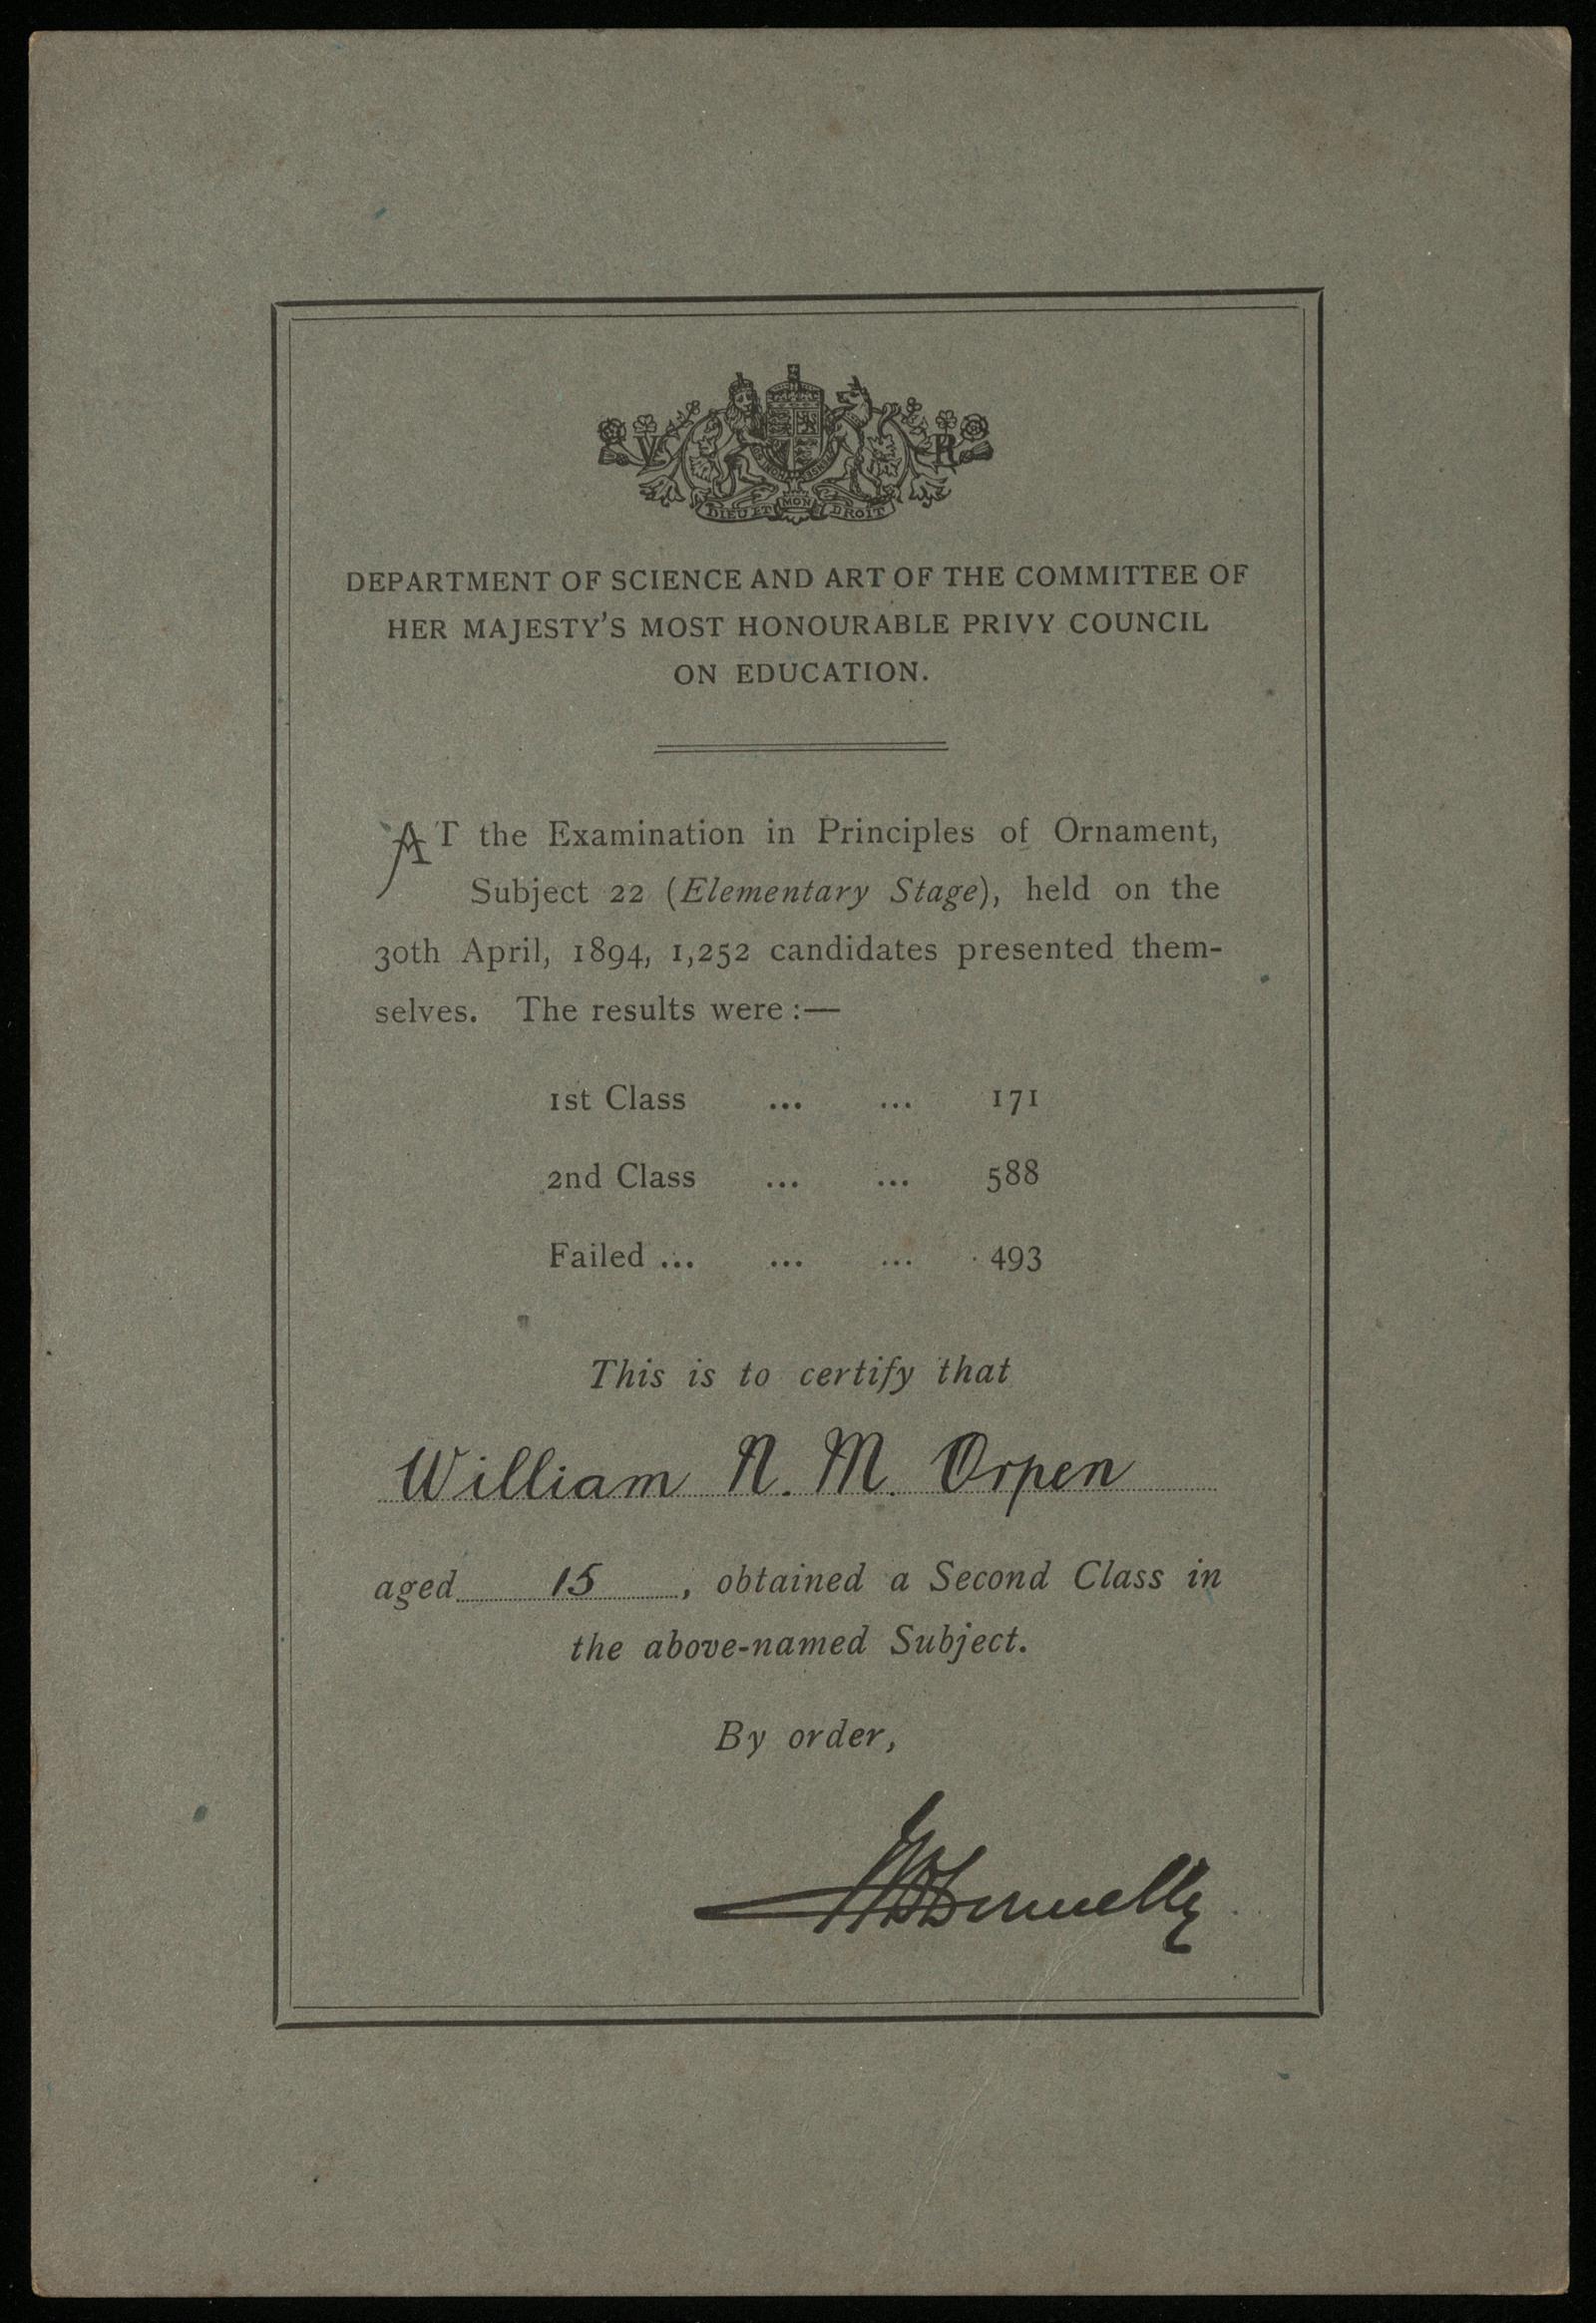 V R
DIEU ET MON DROIT
DEPARTMENT OF SCIENCE AND ART OF THE COMMITTEE OF
HER MAJESTY'S MOST HONOURABLE PRIVY COUNCIL
ON EDUCATION.
AT the Examination in Principles of Ornament,
Subject 22 (Elementary Stage), held on the
30th April, 1894, 1,252 candidates presented them-
selves. The results were :—
1st Class ... ... 171
2nd Class ... ... 588
Failed ... ... ... 493
This is to certify that
William N. M. Orpen
aged 15, obtained a Second Class in
the above-named Subject.
By order,
Donnelly